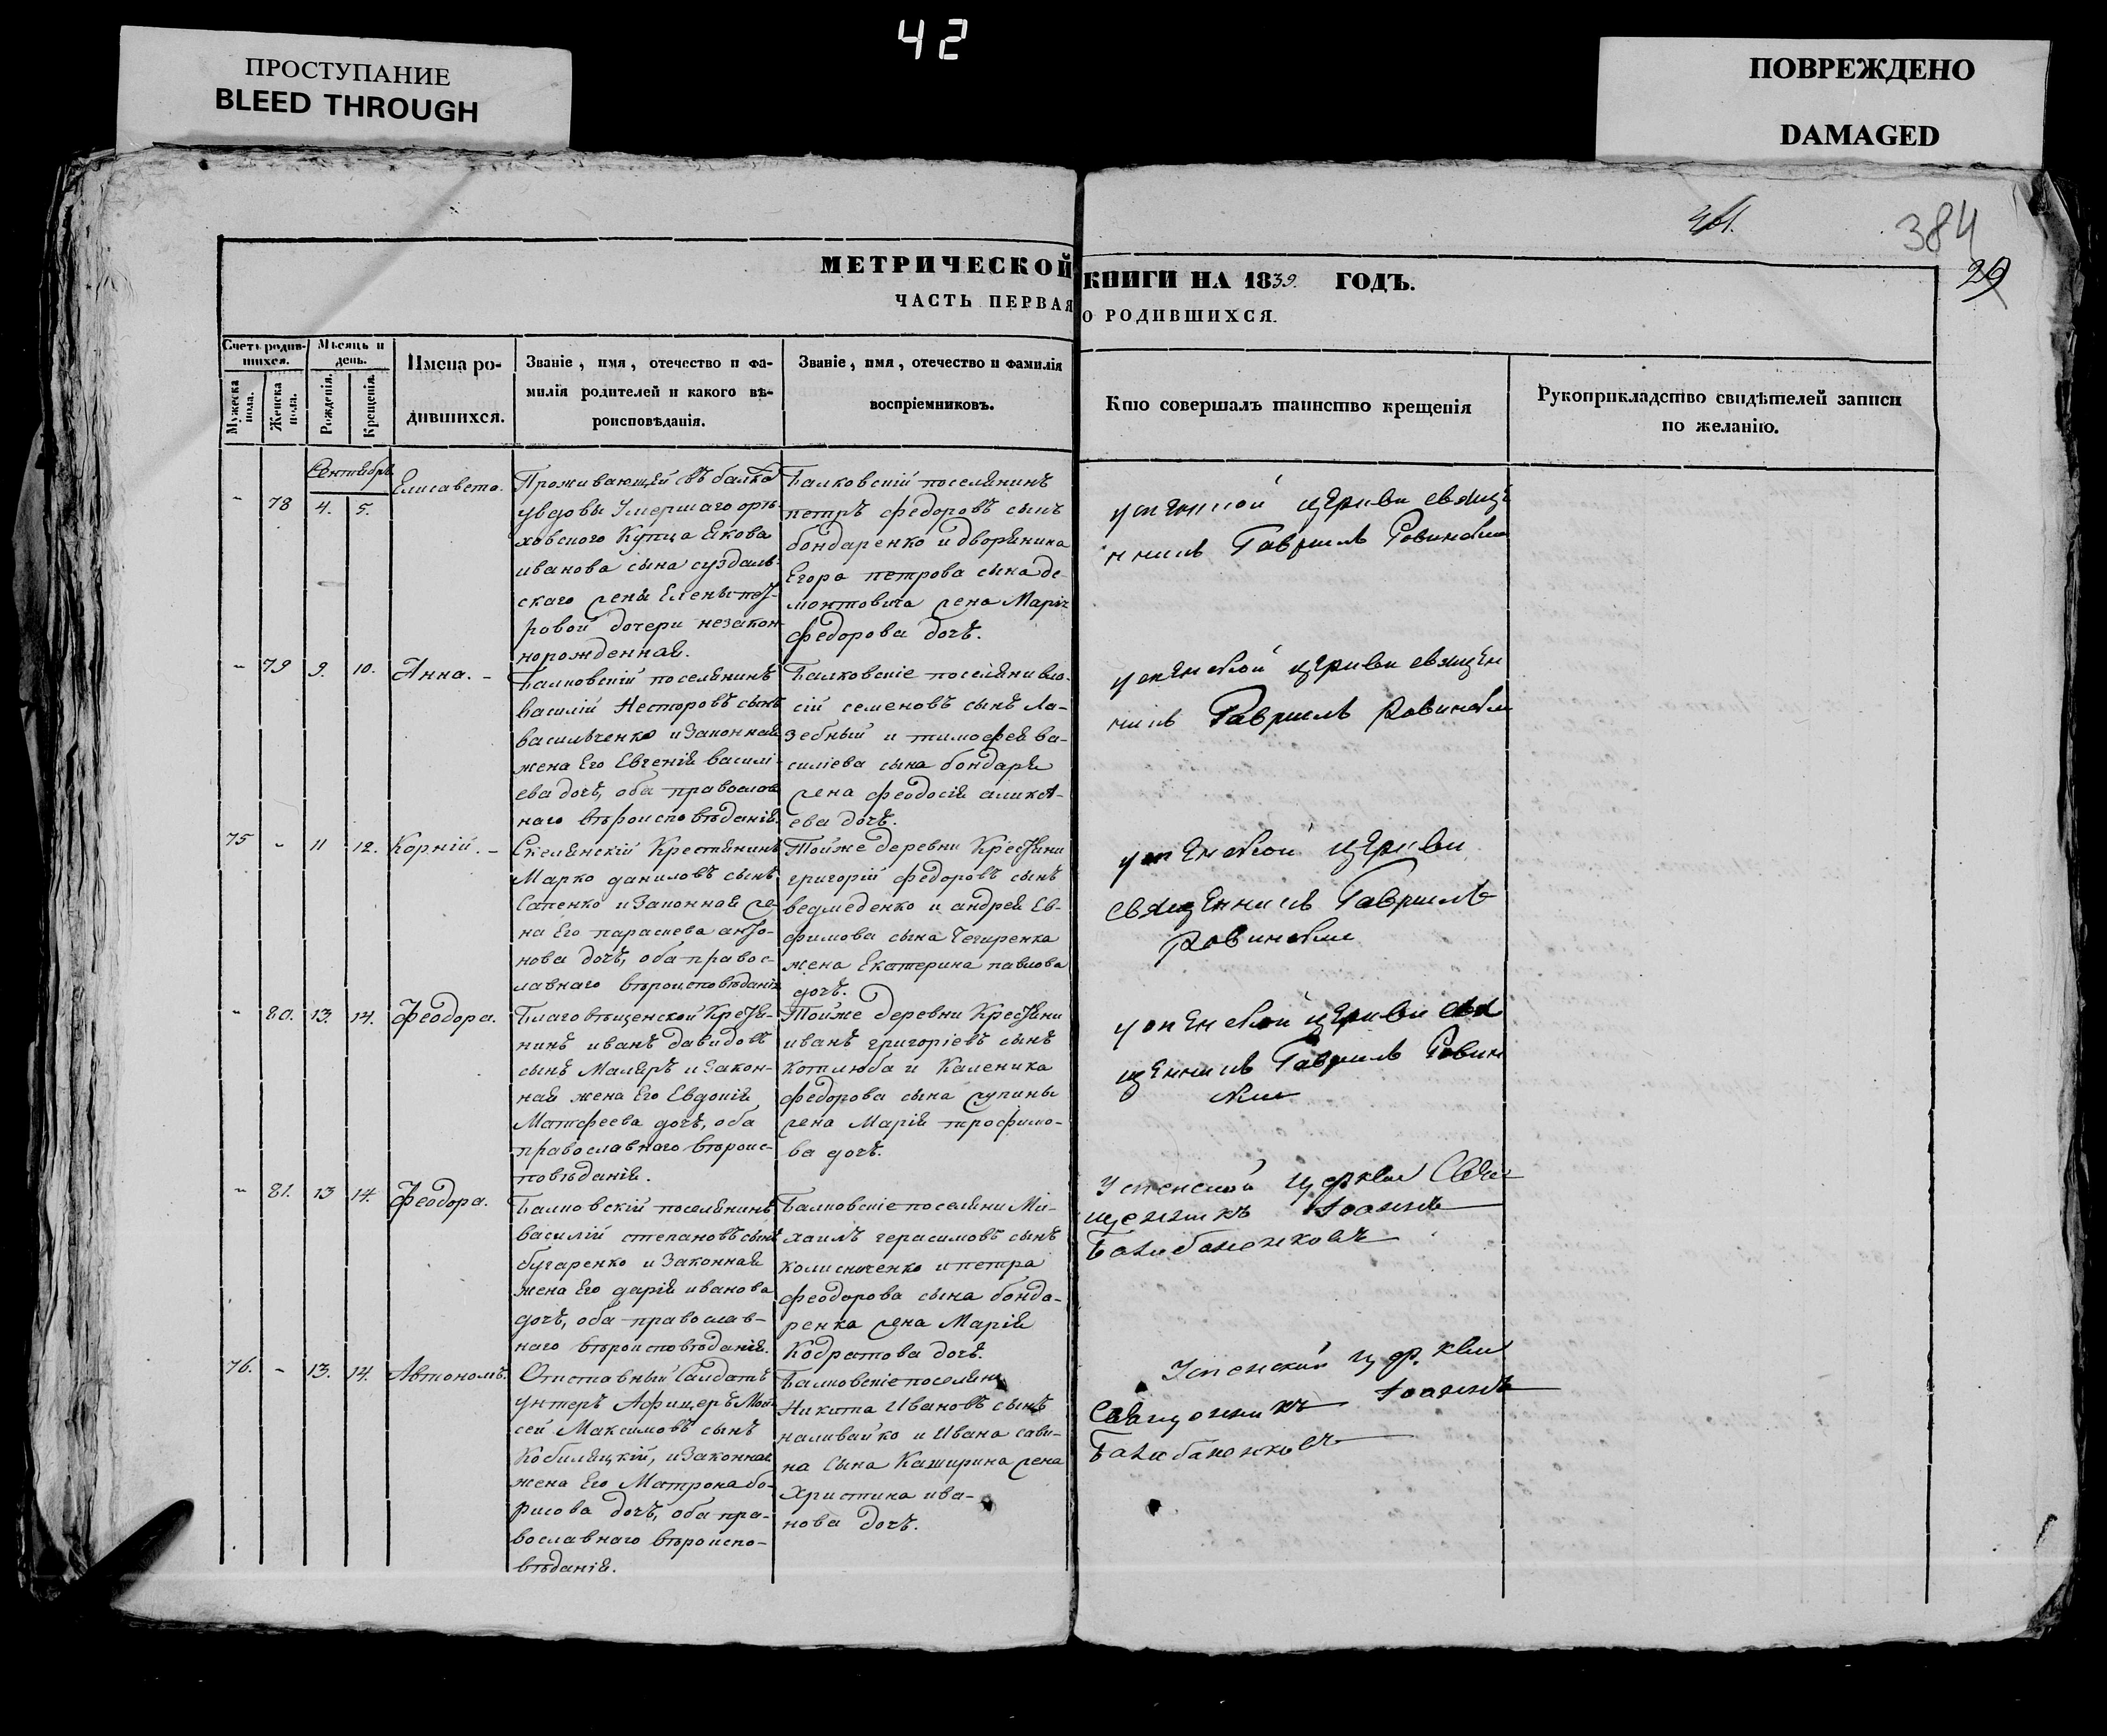 42
ПРОСТУПАНИЕ
BLEED THROUGH
ПОВРЕЖДЕНО
DAMAGED
384
29
МЕТРИЧЕСКОЙ КНИГИ НА 1839. ГОДЪ.
ЧАСТЬ ПЕРВАЯ О РОДИВШИХСЯ.
Счетъ родившихся.
Мужеска пола.
Женска пола.
Мѣсяцъ и день.
Рожденія.
Крещенія.
Имена родившихся.
Званіе, имя, отечество и фамилія родителей и какого вѣроисповѣданія.
Званіе, имя, отечество и фамилія воспріемниковъ.
Кто совершалъ таинство крещенія
Рукоприкладство свидѣтелей записи по желанію.
Сентябрь
- 78 4. 5. Елисавета.
Проживающей въ балкѣ
удовы Умершаго орѣ-
ховского Купца Якова
иванова сына суздаль-
скаго жены Елены пет-
ровой дочери незакон-
норожденная.
Балковскій поселянинъ
петръ федоровъ сынъ
бондаренко и дворянина
Егора петрова сына де-
монтовича жена Марія
федорова дочь.
успенской церкви свяще
нникъ Гавриилъ Ровинскій
- 79 9. 10. Анна. -
Балковскій поселянинъ
василій Несторовъ сынъ
васильченко и Законная
жена Его Евгенія василі-
ева дочь, оба православ
наго вѣроисповѣданія.
Балковскіе поселяни ва-
сій семеновъ сынъ Ла-
зебный и тимофея ва-
силіева сына бондаря
жена феодосія алексѣ-
ева дочь.
успенской церкви священ
никъ Гавриилъ Ровинскій
75 - 11 12. Корнілій. -
Скелянскій Крестянинъ
Марко даниловъ сынъ
Сапенко и Законная же-
на Его параскева анто-
нова дочь, оба правос-
лавнаго вѣроисповѣданія
Тойже деревни Крестяни
григорій федоровъ сынъ
ведмеденко и андрея Ев-
фимова сына Чегиренка
жена Екатерина павлова
дочь.
успенской церкви
священникъ Гавриилъ
Ровинскій
- 80. 13. 14. Феодора.
Благовѣщенской Крестя-
нинъ иванъ давидовъ
сынъ Маляръ и Закон-
ная жена Его Евдокія
Матфеева дочь, оба
православнаго вѣроис-
повѣданія.
Тойже деревни Крестяни
иванъ григоріевъ сынъ
Котлюба и Каленика
федорова сына Супины
жена Марія трофимо-
ва дочь.
успенской церкви свя
щенникъ Гавриилъ Ровин
скій
- 81. 13 14. Феодора.
Балковскій поселянинъ
василій степановъ сынъ
бугаренко и Законная
жена Его дарія иванова
дочь, оба православ-
наго вѣроисповѣданія.
Балковскіе поселяни Ми-
хаилъ герасимовъ сынъ
колисниченко и петра
феодорова сына бонда-
ренка жена Марія
Кодратова дочь.
Успенской церкви Свя
щенникъ Іоаннъ
Балабаненковъ
76. - 13. 14. Автономъ.
Отставный Салдатъ
унтеръ Афицеръ Мои
сей Максимовъ сынъ
Кобиляцкій, и Законная
жена Его Матрона бо-
рисова дочь, оба пра-
вославнаго вѣроиспо-
вѣданія.
Балковскіе поселяни
Никита Ивановъ сынъ
наливайко и Ивана сави-
на Сына Каширина жена
Христина ива-
нова дочь.
Успенской церкви
Священникъ Іоаннъ
Балабаненковъ